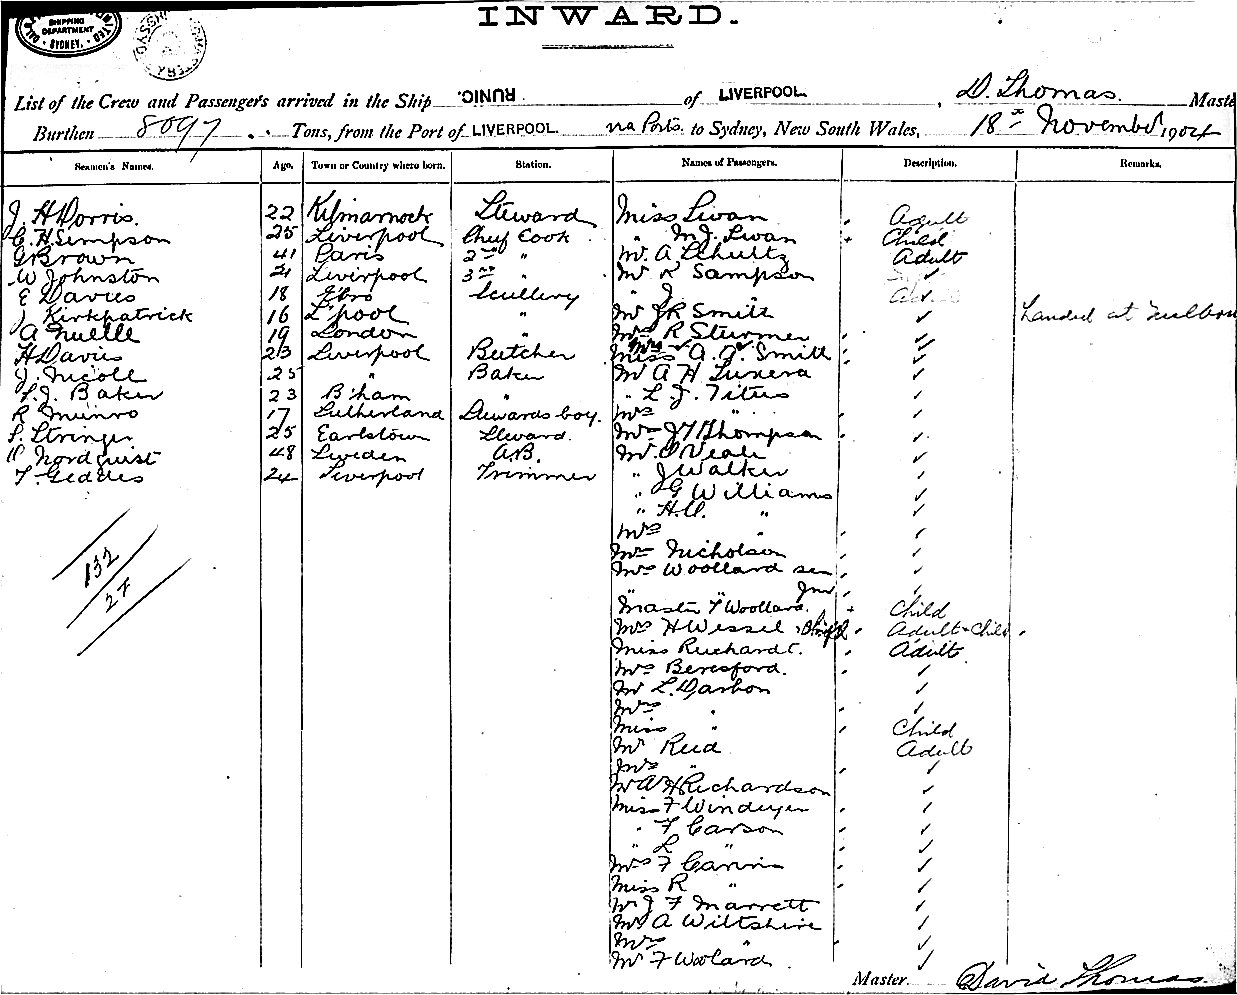 INWARD.
SHIPPING DEPARTMENT SYDNEY.
List of the Crew and Passengers arrived in the Ship RUNIC. of LIVERPOOL. , D. Thomas. Maste
Burthen 8097 Tons, from the Port of LIVERPOOL. via Ports. to Sydney, New South Wales, 18th November 1904
Seamen's Names. Age. Town or Country where born. Station. Names of Passengers. Description. Remarks.
J. H Dorris. 22 Kilmarnock Steward Miss Swan Adult
C. H Simpson 25 Liverpool Chief Cook " M J. Swan Child
G Brown 41 Paris 2nd " Mr. A Schultz Adult
W Johnston 21 Liverpool 3rd " Mr R Sampson ✓
E Davies 18 Ebro Scullery " J. " ✓
J Kirkpatrick 16 L'pool " Mr J R Smith ✓ Landed at Melbou
A 19 London " Mrs R Sturmer ✓
H Davies 23 Liverpool Butcher Miss A. J. Smith ✓
J. Nicoll 25 " Baker Mr A H ✓
S. J. Baker 23 B'ham " " L. J. Titus ✓
R Munro 17 Sutherland Stewards boy. Mrs " ✓
S. Stringer 25 Earlstown Steward. Mrs J T Thompson ✓
Nordquist 48 Sweden A.B. Mr. O'Neale ✓
T. Geddes 24 Liverpool Trimmer " J Walker ✓
" J G Williams ✓
" H.U. " ✓
Mrs " ✓
Mrs Nicholson ✓
Mrs Woollard sen ✓
" " Jnr ✓
132
27
Master F Woollard. Child
Mrs H Wessel & Adult & Child
Miss Ruchardt. Adult
Mrs Beresford. ✓
Mr L. Darbon ✓
Mrs " ✓
Miss " Child
Mr Reid Adult
Mrs " ✓
Mr W H Richardson ✓
Miss F Windeyer ✓
" F Carson ✓
" L " ✓
Mrs F ✓
Miss R " ✓
Mr J F Marrett ✓
Mr A Wiltshire ✓
Mrs " ✓
Mr F Woolard ✓
Master. David Thomas